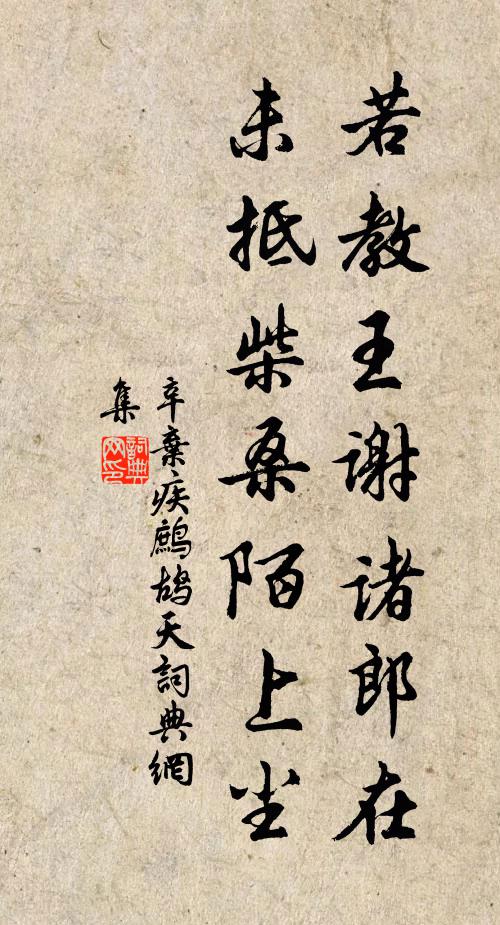 若教王谢诸郎在
未抵柴桑陌上尘
辛棄疾鷓鴣天詞典網
集
詞典
网印